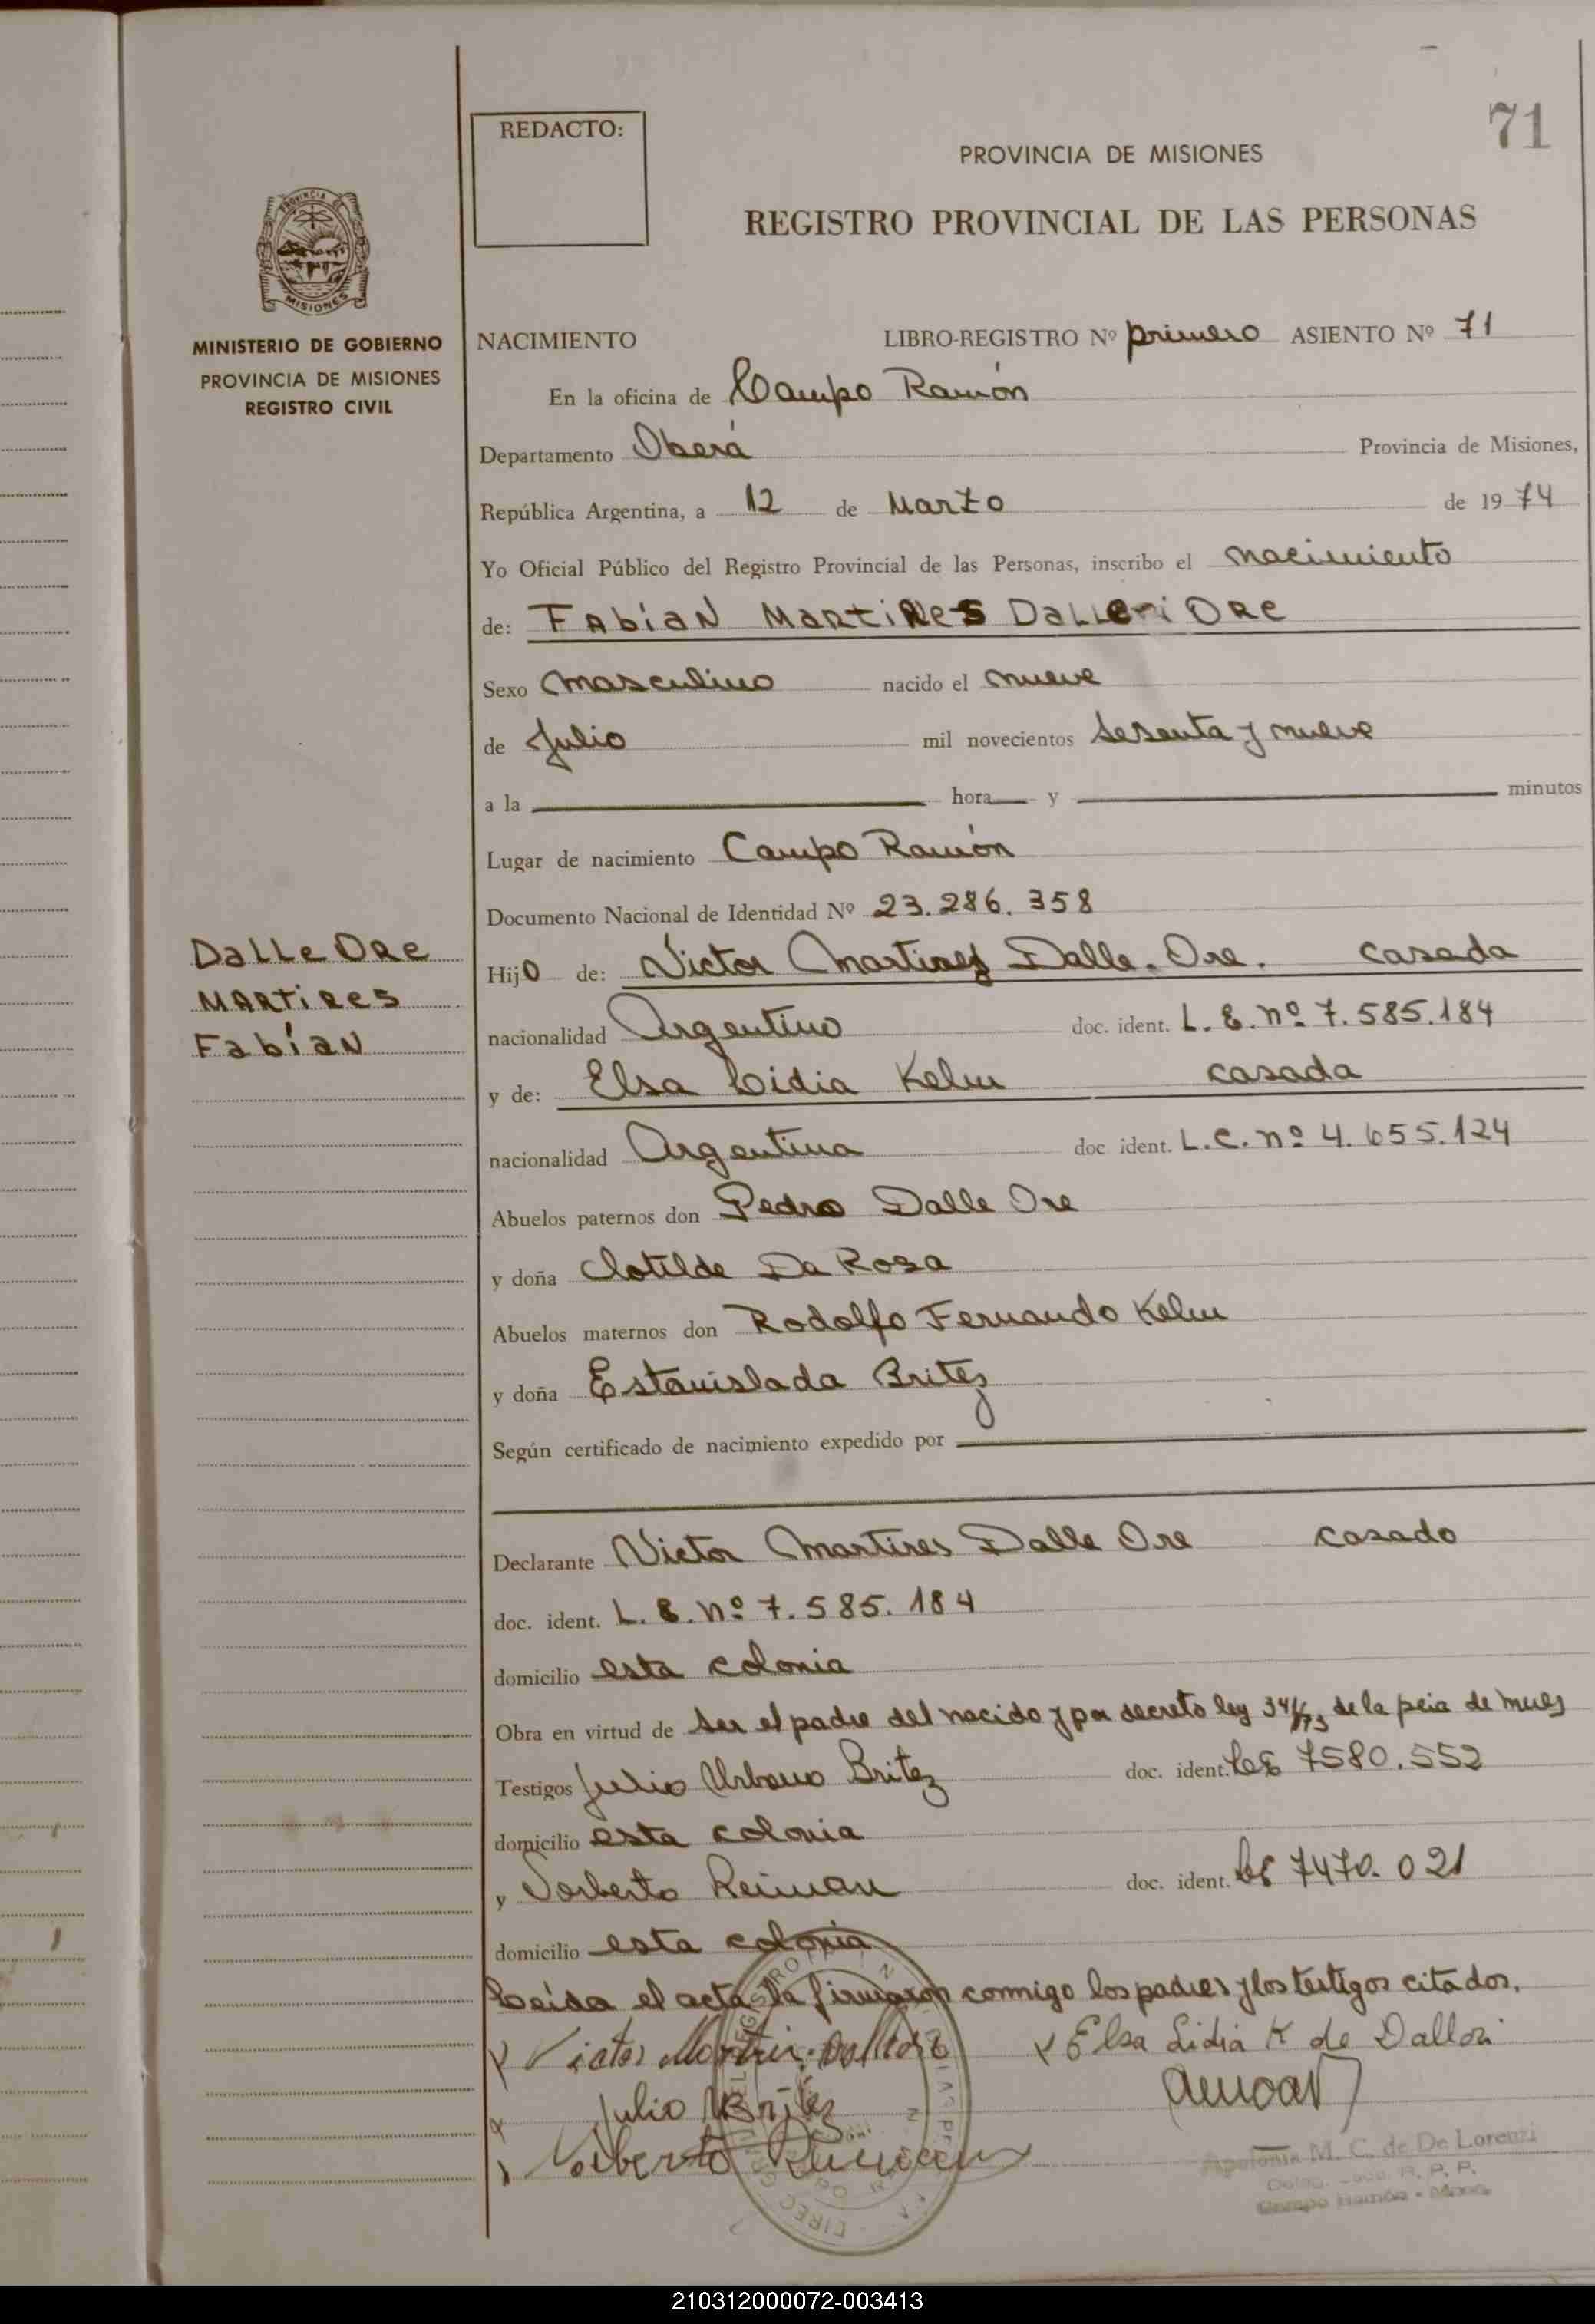 71
REDACTO:
PROVINCIA DE MISIONES
REGISTRO PROVINCIAL DE LAS PERSONAS
PROVINCIA DE
MISIONES
MINISTERIO DE GOBIERNO
PROVINCIA DE MISIONES
REGISTRO CIVIL
NACIMIENTO LIBRO-REGISTRO Nº primero ASIENTO Nº 71
En la oficina de Campo Ramón
Departamento Oberá Provincia de Misiones,
República Argentina, a 12 de Marzo de 1974
Yo Oficial Público del Registro Provincial de las Personas, inscribo el nacimiento
de: FAbíaN MartiRes Dalle ORe
Sexo masculino nacido el nueve
de Julio mil novecientos sesenta y nueve
a la hora y minutos
Lugar de nacimiento Campo Ramón
Documento Nacional de Identidad Nº 23.286.358
Dalle ORe
MARtiRes
FabíaN
Hijo de: Victor Martires Dalle. Ore. casada
nacionalidad Argentino doc. ident. L. E. nº 7.585.184
y de: Elsa Lidia Kelm casada
nacionalidad Argentina doc ident. L.C. nº 4.655.124
Abuelos paternos don Pedro Dalle Ore
y doña Clotilde Da Rosa
Abuelos maternos don Rodolfo Fernando Kelm
y doña Estanislada Britez
Según certificado de nacimiento expedido por
Declarante Victor Martires Dalle Ore casado
doc. ident. L. E. nº 7.585.184
domicilio esta colonia
Obra en virtud de ser el padre del nacido y por decreto ley 341/73 de la pcia de mnes
Testigos Julio Urbano Britez doc. ident. LE 7580.552
domicilio esta colonia
y Norberto Reiman doc. ident. LE 7470.021
domicilio esta colonia
Leída el acta la firmaron conmigo los padres y los testigos citados.
Victor Martir. Dalleore Elsa Lidia K de Dallori
Julio U Britez
Norberto Reiman
Apolonia M. C. de De Lorenzi
R. P. P.
Campo Ramón - Mnes
210312000072-003413